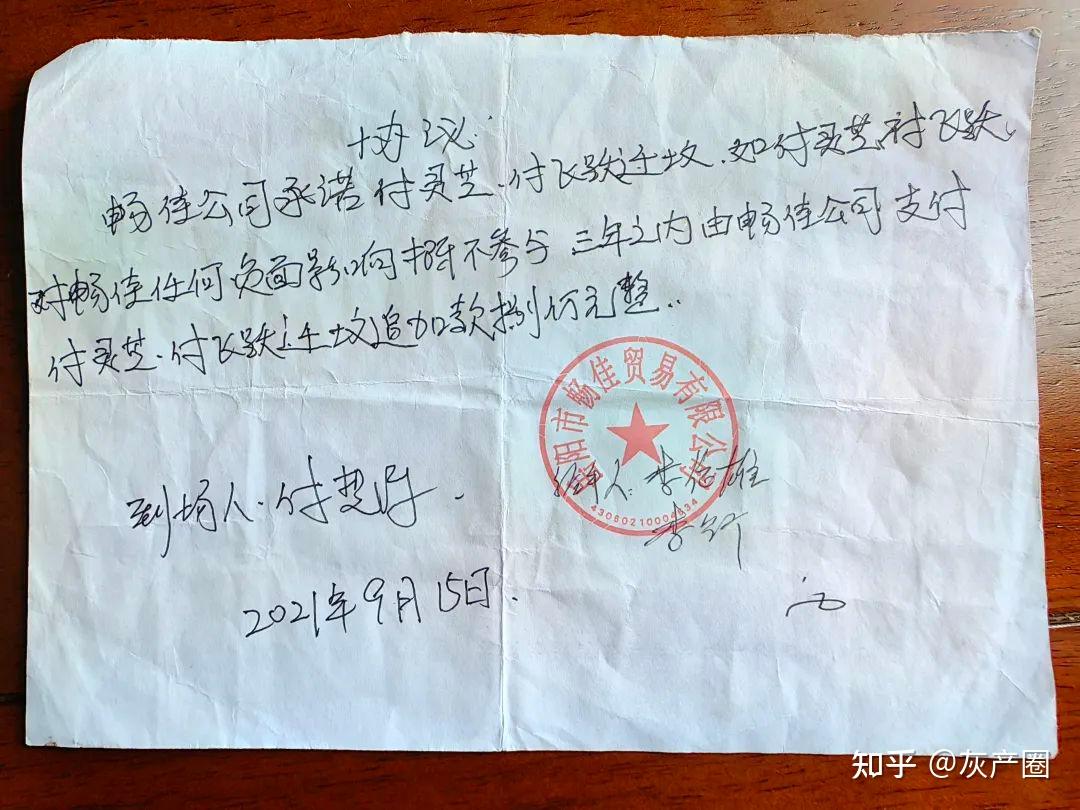 协议
畅佳公司承诺付灵芝、付飞跃迁坟、如付灵芝、付飞跃、
对畅佳任何负面影响 不参与 三年之内由畅佳公司支付
付灵芝、付飞跃迁坟追加款捌仟元整。
岳阳市畅佳贸易有限公司
43060210004634
到场人:付楚
经手人:李 雄
李
2021年9月15日.
知乎 @灰产圈